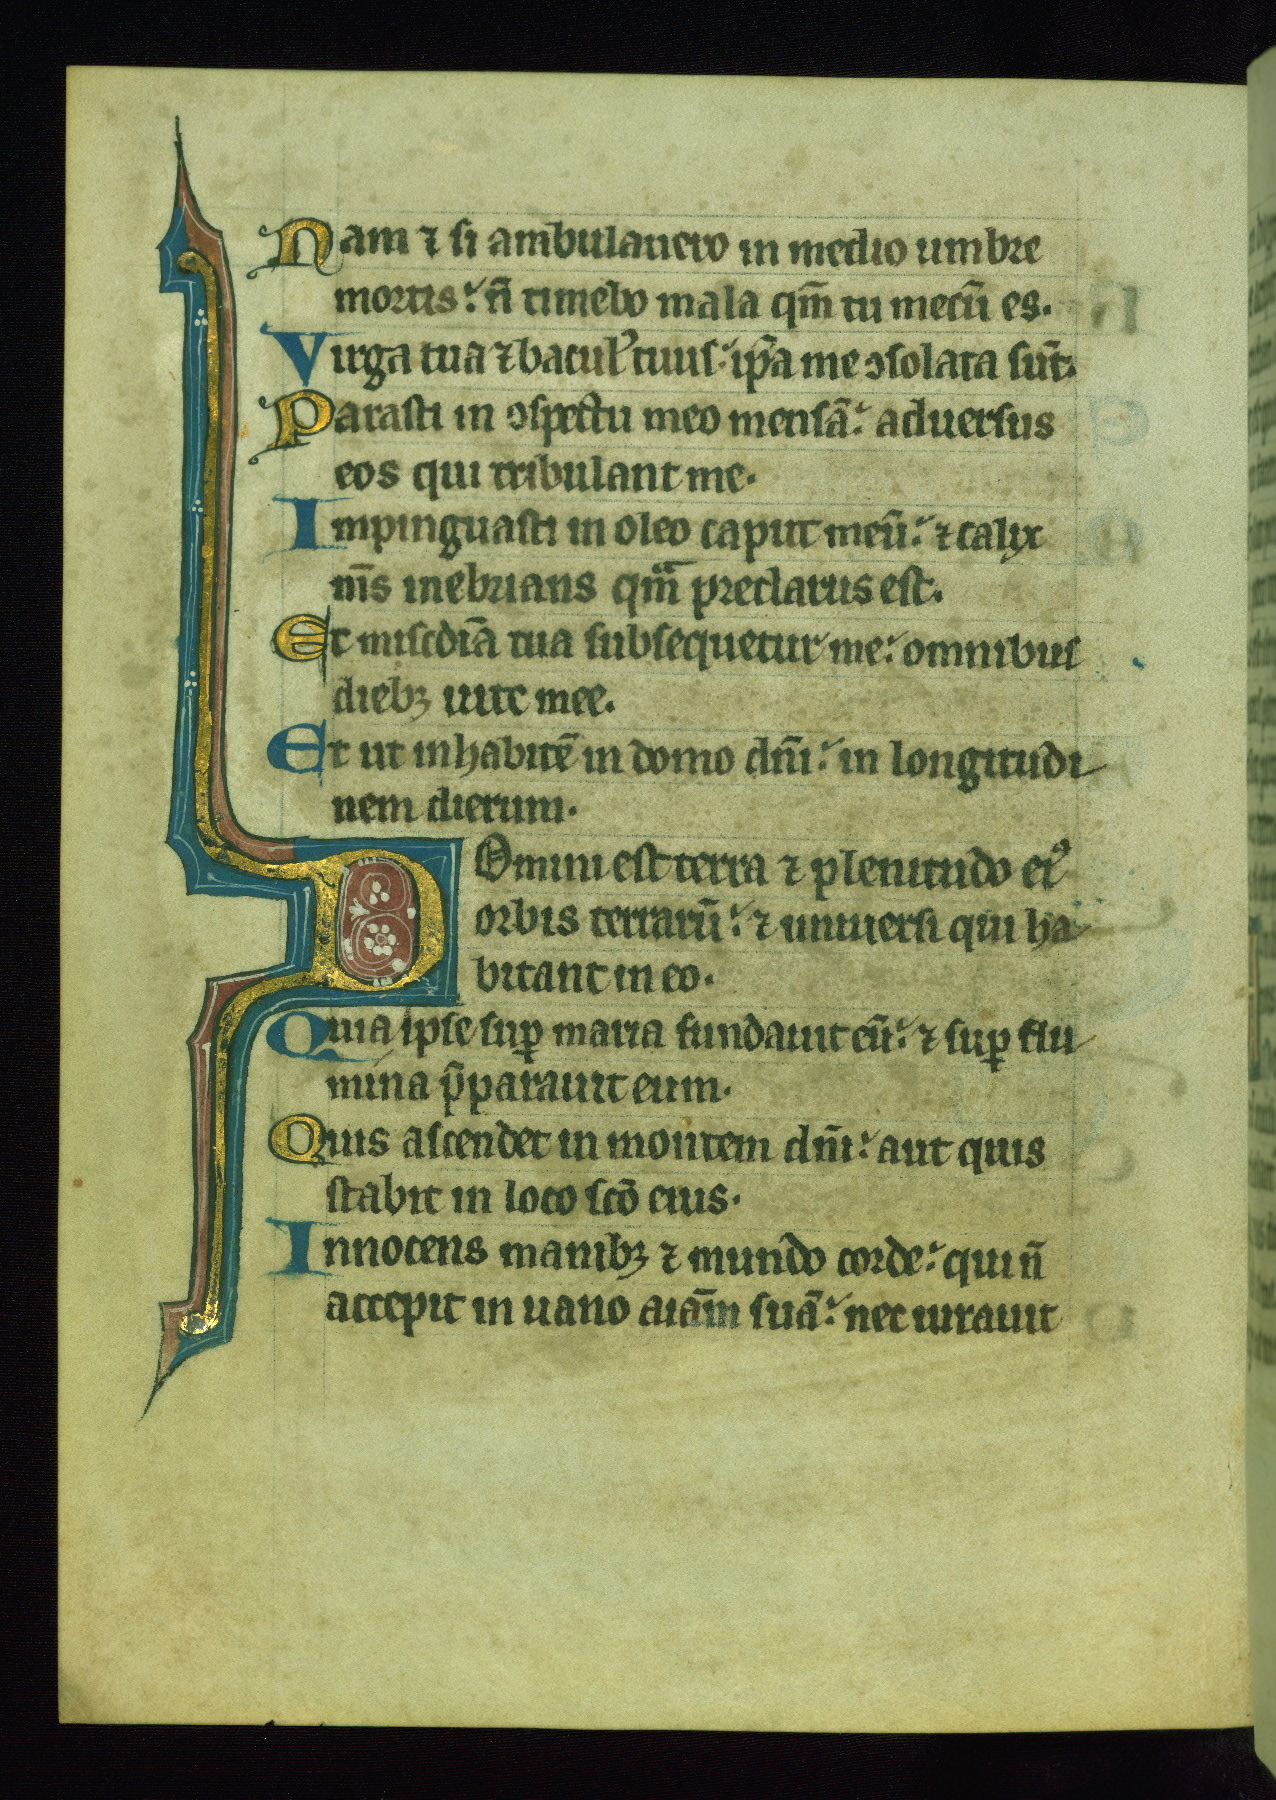 Nam ⁊ si ambulauero in medio umbre
mortis: nō timebo mala qm̄ tu mecū es.
Virga tua ⁊ bacul᾽ tuus: ip̄a me ↄsolata sūt.
Parasti in ↄspectu meo mensā: aduersus
eos qui tribulant me.
Impinguasti in oleo caput meū: ⁊ calix
m̄s inebrians qm̄ preclarus est.
Et misc̄dia tua subsequetur me: omnibus
dieb; uite mee.
Et ut inhabitē in domo dn̄i: in longitudi
nem dierum.
Domini est terra ⁊ plenitudo ei᾽
orbis terrarū: ⁊ uniuersi qui ha
bitant in eo.
Quia ipse sup̱ maria fundauit eū: ⁊ sup̱ flu
mina p̄parauit eum.
Quis ascendet in montem dn̄i: aut quis
stabit in loco sc̄o eius.
Innocens manib; ⁊ mundo corde: qui n̄
accepit in uano aiām suā: nec iurauit